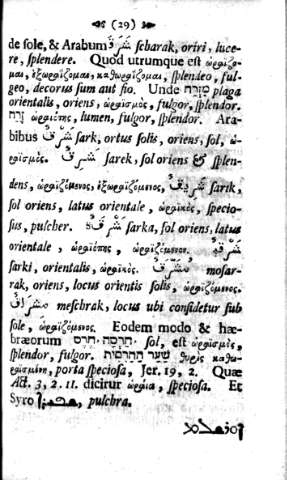 (29)
de sole, & Arabum شَرَقَ scharak, oriri, luce-
re, splendere. Quod utrumque est ὡραΐζο-
μαι, ἐξωραΐζομαι, καθωραΐζομαι, splendeo, ful-
geo, decorus sum aut fio. Unde מִזְרָח plaga
orientalis, oriens, ὡραϊσμὸς, fulgor, splendor.
זֶרַח ὡραιότης, lumen, fulgor, splendor. Ara-
bibus شَرْقٌ sark, ortus solis, oriens, sol, ὡ-
ραϊσμὸς. شَرَقٌ sarek, sol oriens & splen-
dens, ὡραϊζόμενος, ἐξωραϊζόμενος, شَرِيقٌ sarik,
sol oriens, latus orientale, ὡραϊκὸς, specio-
sus, pulcher. شَرْقَةٌ sarka, sol oriens, latus
orientale, ὡραιότης, ὡραϊζόμενος. شَرْقِيٌّ
sarki, orientalis, ὡραϊκὸς. مَشْرِقٌ mosar-
rak, oriens, locus orientis solis, ὡραϊζόμενος.
مِشْرَاقٌ meschrak, locus ubi considetur sub
sole, ὡραϊζόμενος. Eodem modo & hæ-
bræorum חַרְסָה חֶרֶס sol, est ὡραϊσμὸς,
splendor, fulgor. שַׁעַר הַחַרְסוּת θυρὶς καθω-
ραϊσμένη, porta speciosa, Jer. 19, 2. Quæ
Act. 3, 2. 11. dicitur ὡραία, speciosa. Et
Syro pulchra.